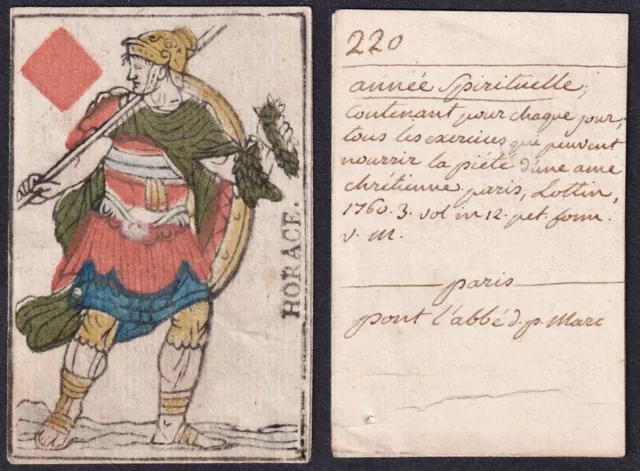 HORACE.
220
année Spirituelle,
Contenant pour chaque jour,
tous les exercices que peuvent
nourrir la piété d'une ame
chrétienne paris, Lottin,
1760. 3. vol in 12. pet form.
v. M.
paris
pont l'abbé d. p. Marc